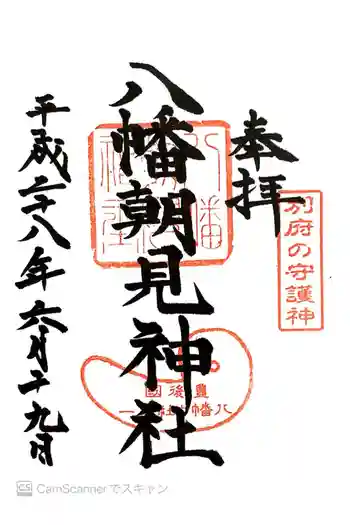 奉拝
別府の守護神
八幡朝見神社
豊後国
平成二十八年六月二十九日
CS CamScannerでスキャン